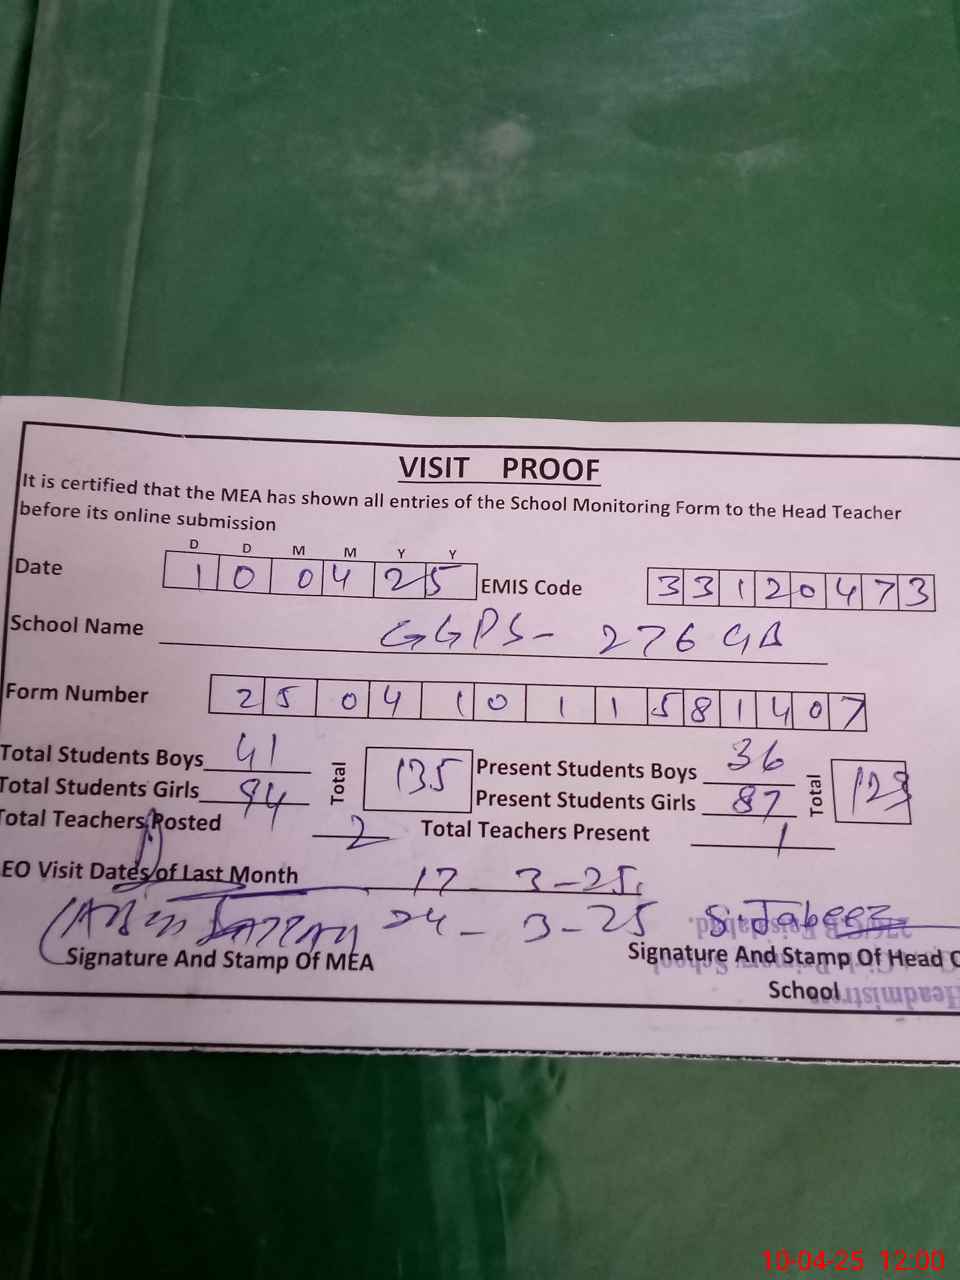 VISIT PROOF
It is certified that the MEA has shown all entries of the School Monitoring Form to the Head Teacher
before its online submission
D D M M Y Y
Date 1 0 0 4 2 5 EMIS Code 3 3 1 2 0 4 7 3
School Name GGPS- 276 GB
Form Number 2 5 0 4 1 0 1 1 5 8 1 4 0 7
Total Students Boys 41 Total 135 Present Students Boys 36 Total 123
Total Students Girls 94 Present Students Girls 87
Total Teachers Posted 2 Total Teachers Present 1
EO Visit Dates of Last Month 17 3-25
24-3-25 S.Tabeez
Signature And Stamp Of MEA Signature And Stamp Of Head O
School
Headmistress
10-04-25 12:00